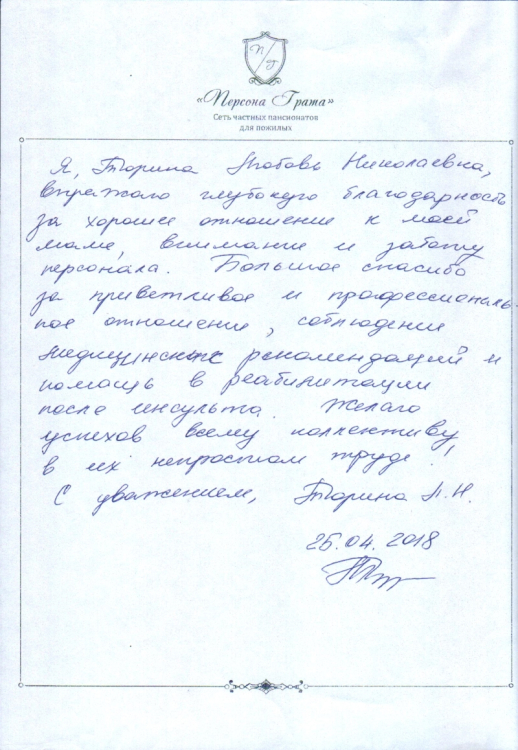 П/Г
«Персона Грата»
Сеть частных пансионатов
для пожилых
Я, Торина Любовь Николаевна,
выражаю глубокую благодарность
за хорошее отношение к моей
маме, внимание и заботу
персонала. Большое спасибо
за приветливое и профессиональ-
ное отношение, соблюдение
медицинских рекомендаций и
помощь в реабилитации
после инсульта. Желаю
успехов всему коллективу
в их непростом труде!
С уважением, Торина Л.Н.
25.04.2018